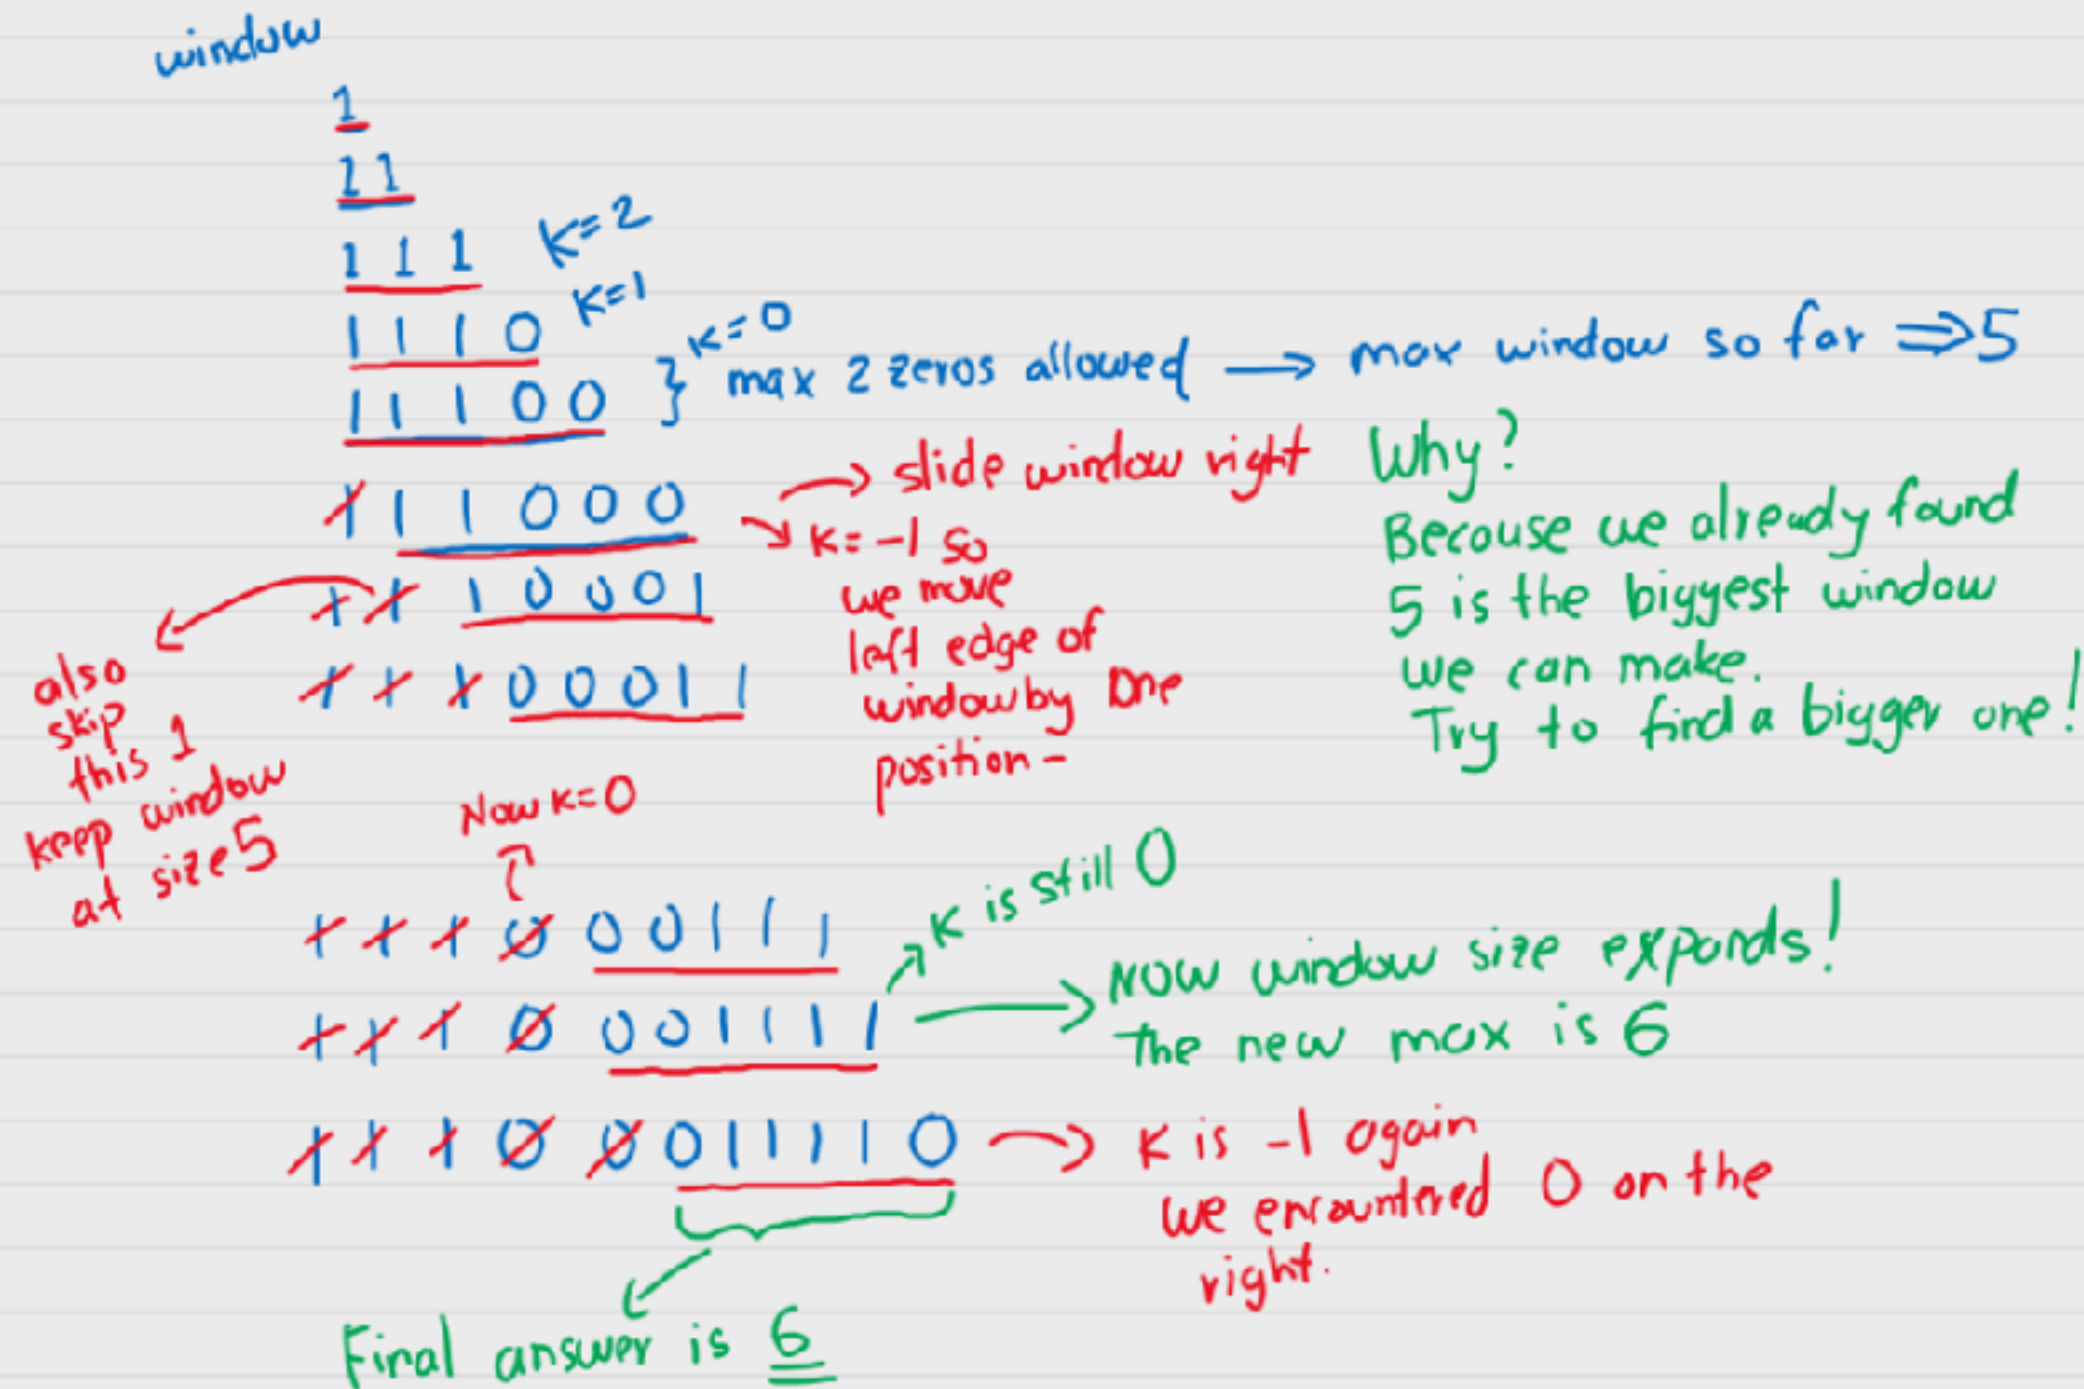 window
1
11
111 K=2
1110 K=1
11100 } K=0
max 2 zeros allowed → max window so far ⇒ 5
111000 → slide window right
→ K=-1 so
we move
left edge of
window by one
position -
Why?
Because we already found
5 is the biggest window
we can make.
Try to find a bigger one!
1110001
also
skip
this 1
keep window
at size 5
11100011
Now K=0
111000111
1110001111 → K is still 0
→ Now window size expands!
the new max is 6
11100011110 → K is -1 again
we encountered 0 on the
right.
Final answer is 6